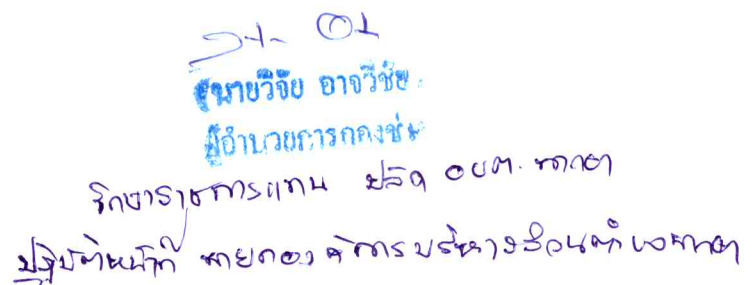 (นายวิจัย อาจวิชัย)
ผู้อำนวยการกองช่าง
รักษาราชการแทน ปลัด อบต. นาทดา
ปฏิบัติหน้าที่ นายกองค์การบริหารส่วนตำบล